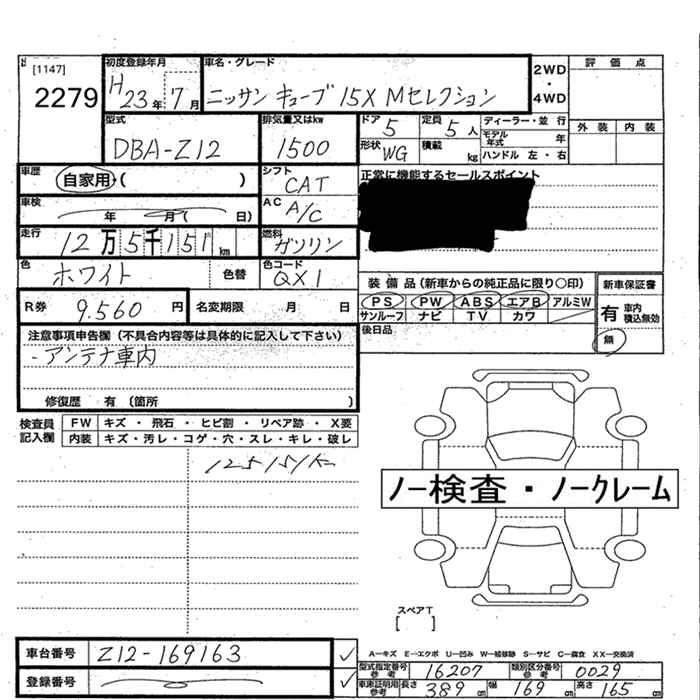 [1147]
2279
初度登録年月
H23年7月
車名・グレード
ニッサン キューブ 15X Mセレクション
2WD
・
4WD
評価点
外装 内装
型式
DBA-Z12
排気量又はkw
1500
ドア 5
定員 5人
ディーラー・並行
モデル年式 年
形状 WG
積載 kg
ハンドル 左・右
車歴
自家用・( )
シフト
CAT
正常に機能するセールスポイント
車検
年 月( 日)
AC
A/C
走行
12万5千151km
燃料
ガソリン
色
ホワイト
色替
色コード
QX1
R券 9.560円
名変期限 月 日
装備品(新車からの純正品に限り○印)
PS PW ABS エアB アルミW
サンルーフ ナビ TV カワ
後日品
新車保証書
有 車内積込無効
無
注意事項申告欄(不具合内容等は具体的に記入して下さい)
・アンテナ車内
修復歴 有(箇所 )
検査員記入欄
FW キズ・飛石・ヒビ割・リペア跡・X要
内装 キズ・汚レ・コゲ・穴・スレ・キレ・破レ
125151K
ノー検査・ノークレーム
スペアT
[ ]
車台番号 Z12-169163
登録番号
A-キズ E-エクボ U-凹み W-補修跡 S-サビ C-腐食 XX-交換済
型式指定番号参考 16207
類別区分番号参考 0029
車庫証明用参考 長さ 389cm 幅 169cm 高さ 165cm